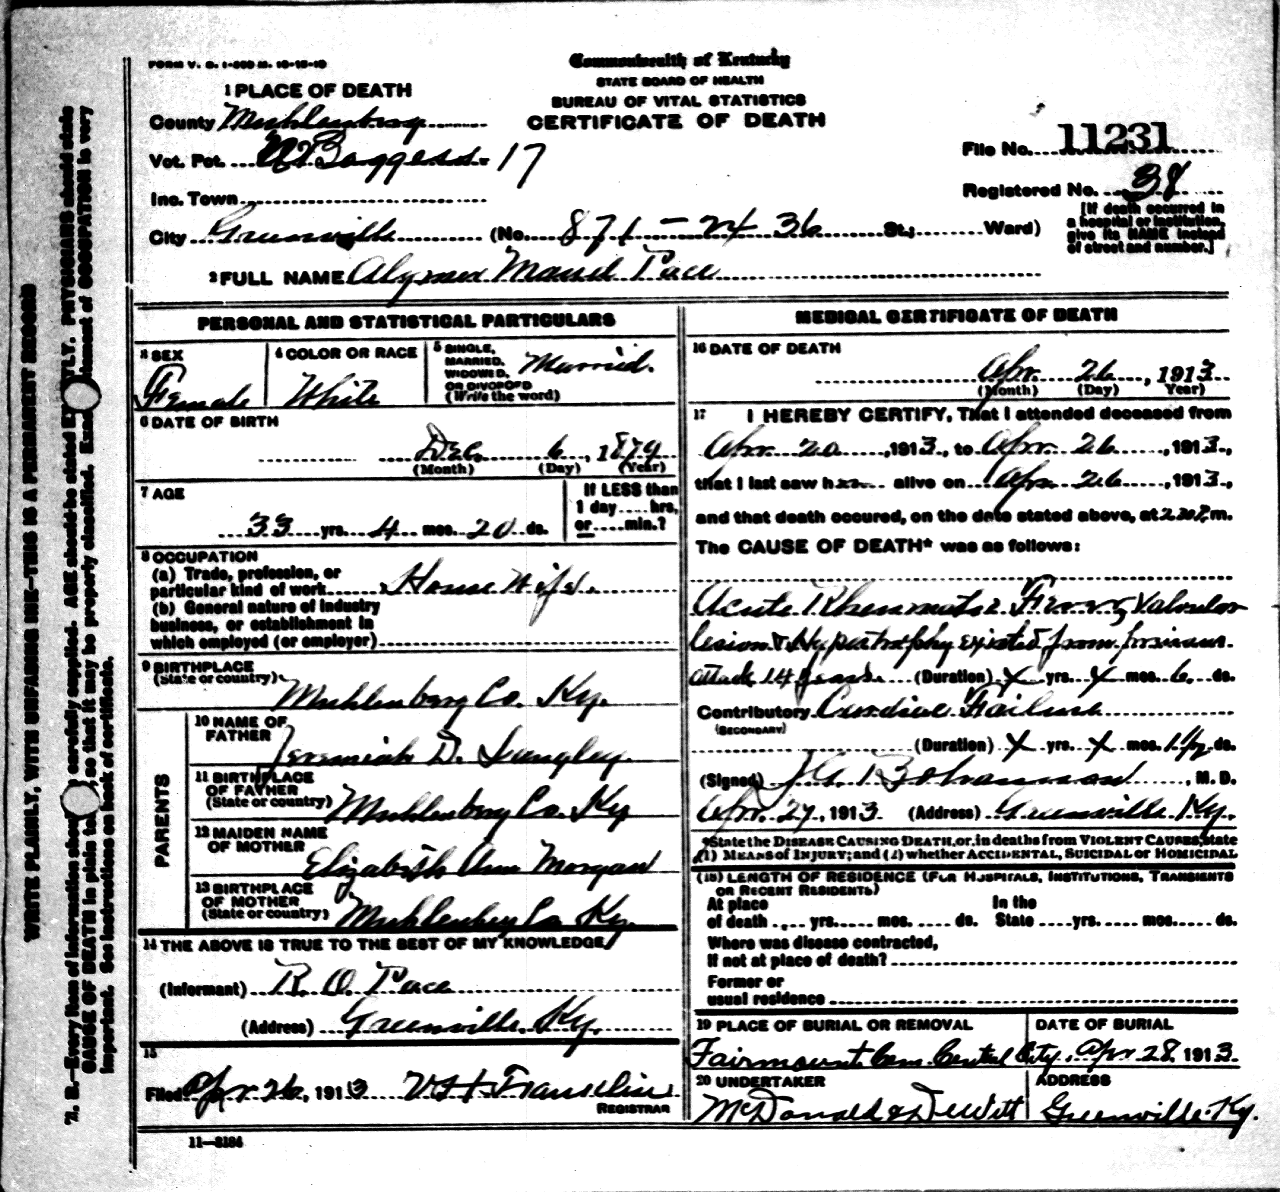 FORM V. S. 1-
Commonwealth of Kentucky
STATE BOARD OF HEALTH
BUREAU OF VITAL STATISTICS
CERTIFICATE OF DEATH
1 PLACE OF DEATH
County Muhlenberg
Vot. Pct. 17
Inc. Town
City Greenville (No. 871-24 36 St.; Ward)
File No. 11231
Registered No. 38
[If death occurred in
a hospital or institution,
give its NAME instead
of street and number.]
2 FULL NAME Pace
PERSONAL AND STATISTICAL PARTICULARS
3 SEX
Female
4 COLOR OR RACE
White
5 SINGLE,
MARRIED,
WIDOWED,
OR DIVORCED
(Write the word)
Married.
6 DATE OF BIRTH
Dec. 6, 1879
(Month) (Day) (Year)
7 AGE
33 yrs. 4 mos. 20 ds.
If LESS than
1 day.....hrs,
or.....min.?
8 OCCUPATION
(a) Trade, profession, or
particular kind of work House Wife.
(b) General nature of industry
business, or establishment in
which employed (or employer)
9 BIRTHPLACE
(State or country) Muhlenberg Co. Ky.
PARENTS
10 NAME OF
FATHER Jeremiah D. Langley.
11 BIRTHPLACE
OF FATHER
(State or country) Muhlenberg Co. Ky
12 MAIDEN NAME
OF MOTHER Elizabeth Ann Morgan
13 BIRTHPLACE
OF MOTHER
(State or country) Muhlenberg Co. Ky.
14 THE ABOVE IS TRUE TO THE BEST OF MY KNOWLEDGE
(Informant) R. O. Pace
(Address) Greenville. Ky.
15
Filed Apr 26, 1913
REGISTRAR
11—3184
MEDICAL CERTIFICATE OF DEATH
16 DATE OF DEATH
Apr. 26, 1913
(Month) (Day) (Year)
17 I HEREBY CERTIFY, That I attended deceased from
Apr. 20, 1913, to Apr. 26, 1913,
that I last saw her alive on Apr. 26, 1913,
and that death occured, on the date stated above, at m.
The CAUSE OF DEATH* was as follows:
Acute Rheumatic Fever, Valvular
lesion & Hypertrophy existed from previous
attack 14 years. (Duration) x yrs. x mos. 6 ds.
Contributory Cardiac Failure
(SECONDARY)
(Duration) x yrs. x mos. 1 1/2 ds.
(Signed) Bohannon, M. D.
Apr. 27, 1913 (Address) Greenville Ky.
*State the DISEASE CAUSING DEATH, or, in deaths from VIOLENT CAUSES, state
(1) MEANS OF INJURY; and (2) whether ACCIDENTAL, SUICIDAL or HOMICIDAL
(18) LENGTH OF RESIDENCE (FOR HOSPITALS, INSTITUTIONS, TRANSIENTS
OR RECENT RESIDENTS)
At place
of death yrs. mos. ds.
In the
State yrs. mos. ds.
Where was disease contracted,
If not at place of death?
Former or
usual residence
19 PLACE OF BURIAL OR REMOVAL
Fairmount Cem. Central City.
DATE OF BURIAL
Apr 28, 1913.
20 UNDERTAKER
McDonald & DeWitt
ADDRESS
Greenville. Ky.
WRITE PLAINLY, WITH UNFADING INK—THIS IS A PERMANENT RECORD
N. B.—Every item of information should carefully supplied. AGE should be stated LY. PHYSICIANS should state
CAUSE OF DEATH in plain so that it may be properly classified. Exact of OCCUPATION is very
important. See instructions on back of certificate.